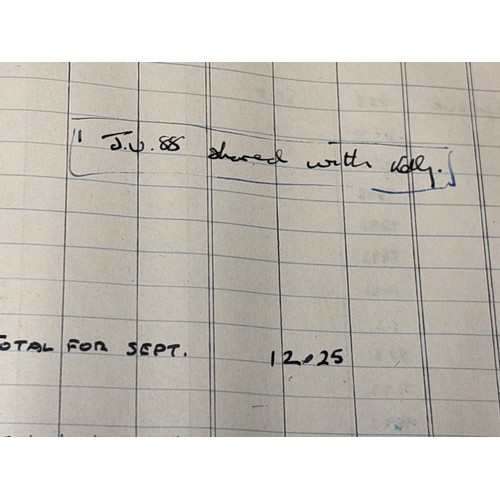 1 J.U.88 shared with Kelly.
TOTAL FOR SEPT. 12.25